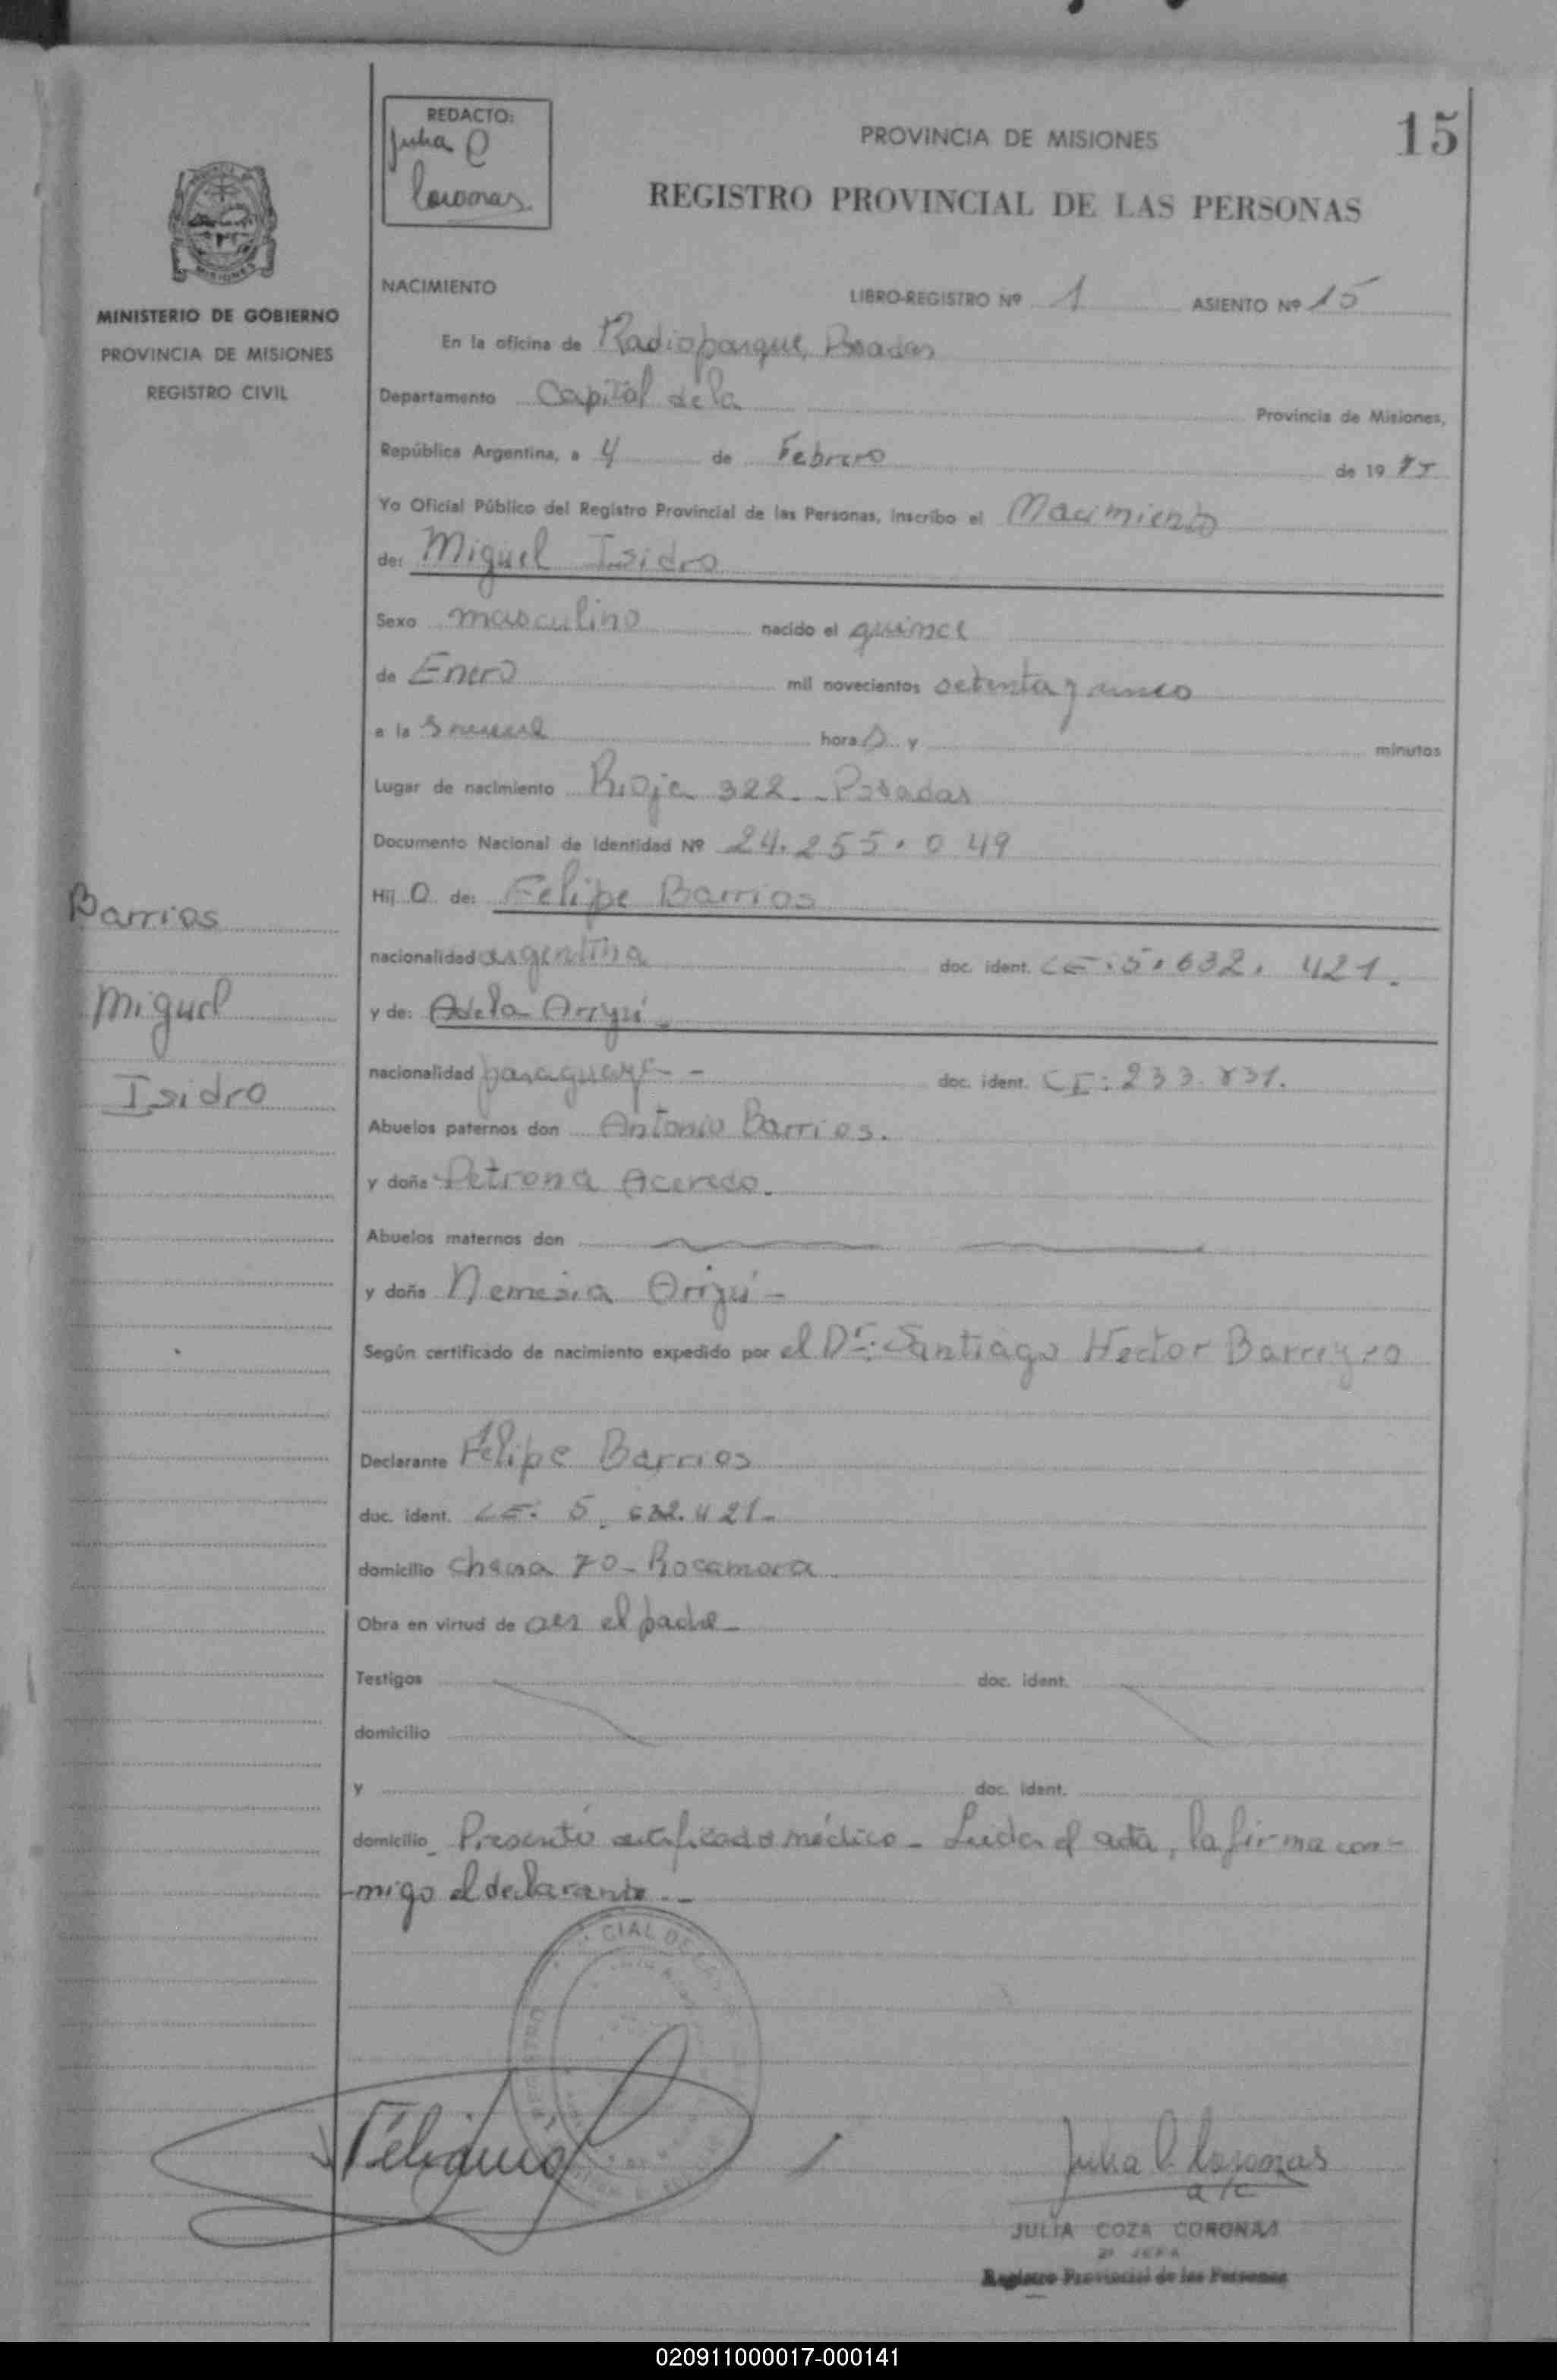 REDACTO:
Julia C
Coronas.
PROVINCIA DE MISIONES
15
REGISTRO PROVINCIAL DE LAS PERSONAS
MISIONES
MINISTERIO DE GOBIERNO
PROVINCIA DE MISIONES
REGISTRO CIVIL
NACIMIENTO
LIBRO-REGISTRO Nº 1 ASIENTO Nº 15
En la oficina de Radioparque, Posadas
Departamento Capital de la Provincia de Misiones,
República Argentina, a 4 de Febrero de 19 75
Yo Oficial Público del Registro Provincial de las Personas, inscribo el Nacimiento
de: Miguel Isidro
Sexo masculino nacido el quince
de Enero mil novecientos setenta y cinco
a la s nueve hora s y minutos
Lugar de nacimiento Rioja 322 - Posadas
Documento Nacional de Identidad Nº 24.255.049
Hij o de: Felipe Barrios
nacionalidad argentina doc. ident. LE. 5.632.421.
y de: Adela Arryú -
nacionalidad paraguaya - doc. ident. CI: 233.831.
Abuelos paternos don Antonio Barrios.
y doña Petrona Acevedo.
Abuelos maternos don
y doña Nemesia Arryú -
Según certificado de nacimiento expedido por el Dr: Santiago Hector Barreyro
Declarante Felipe Barrios
doc. ident. LE. 5.632.421.
domicilio chacra 70 - Rocamora
Obra en virtud de ser el padre -
Testigos doc. ident.
domicilio
y doc. ident.
domicilio Presentó certificado médico - Leída el acta, la firma con-
migo el declarante. -
Barrios
Miguel
Isidro
Julia C. Coronas
a/c
JULIA COZA CORONAS
2ª JEFA
Registro Provincial de las Personas
020911000017-000141